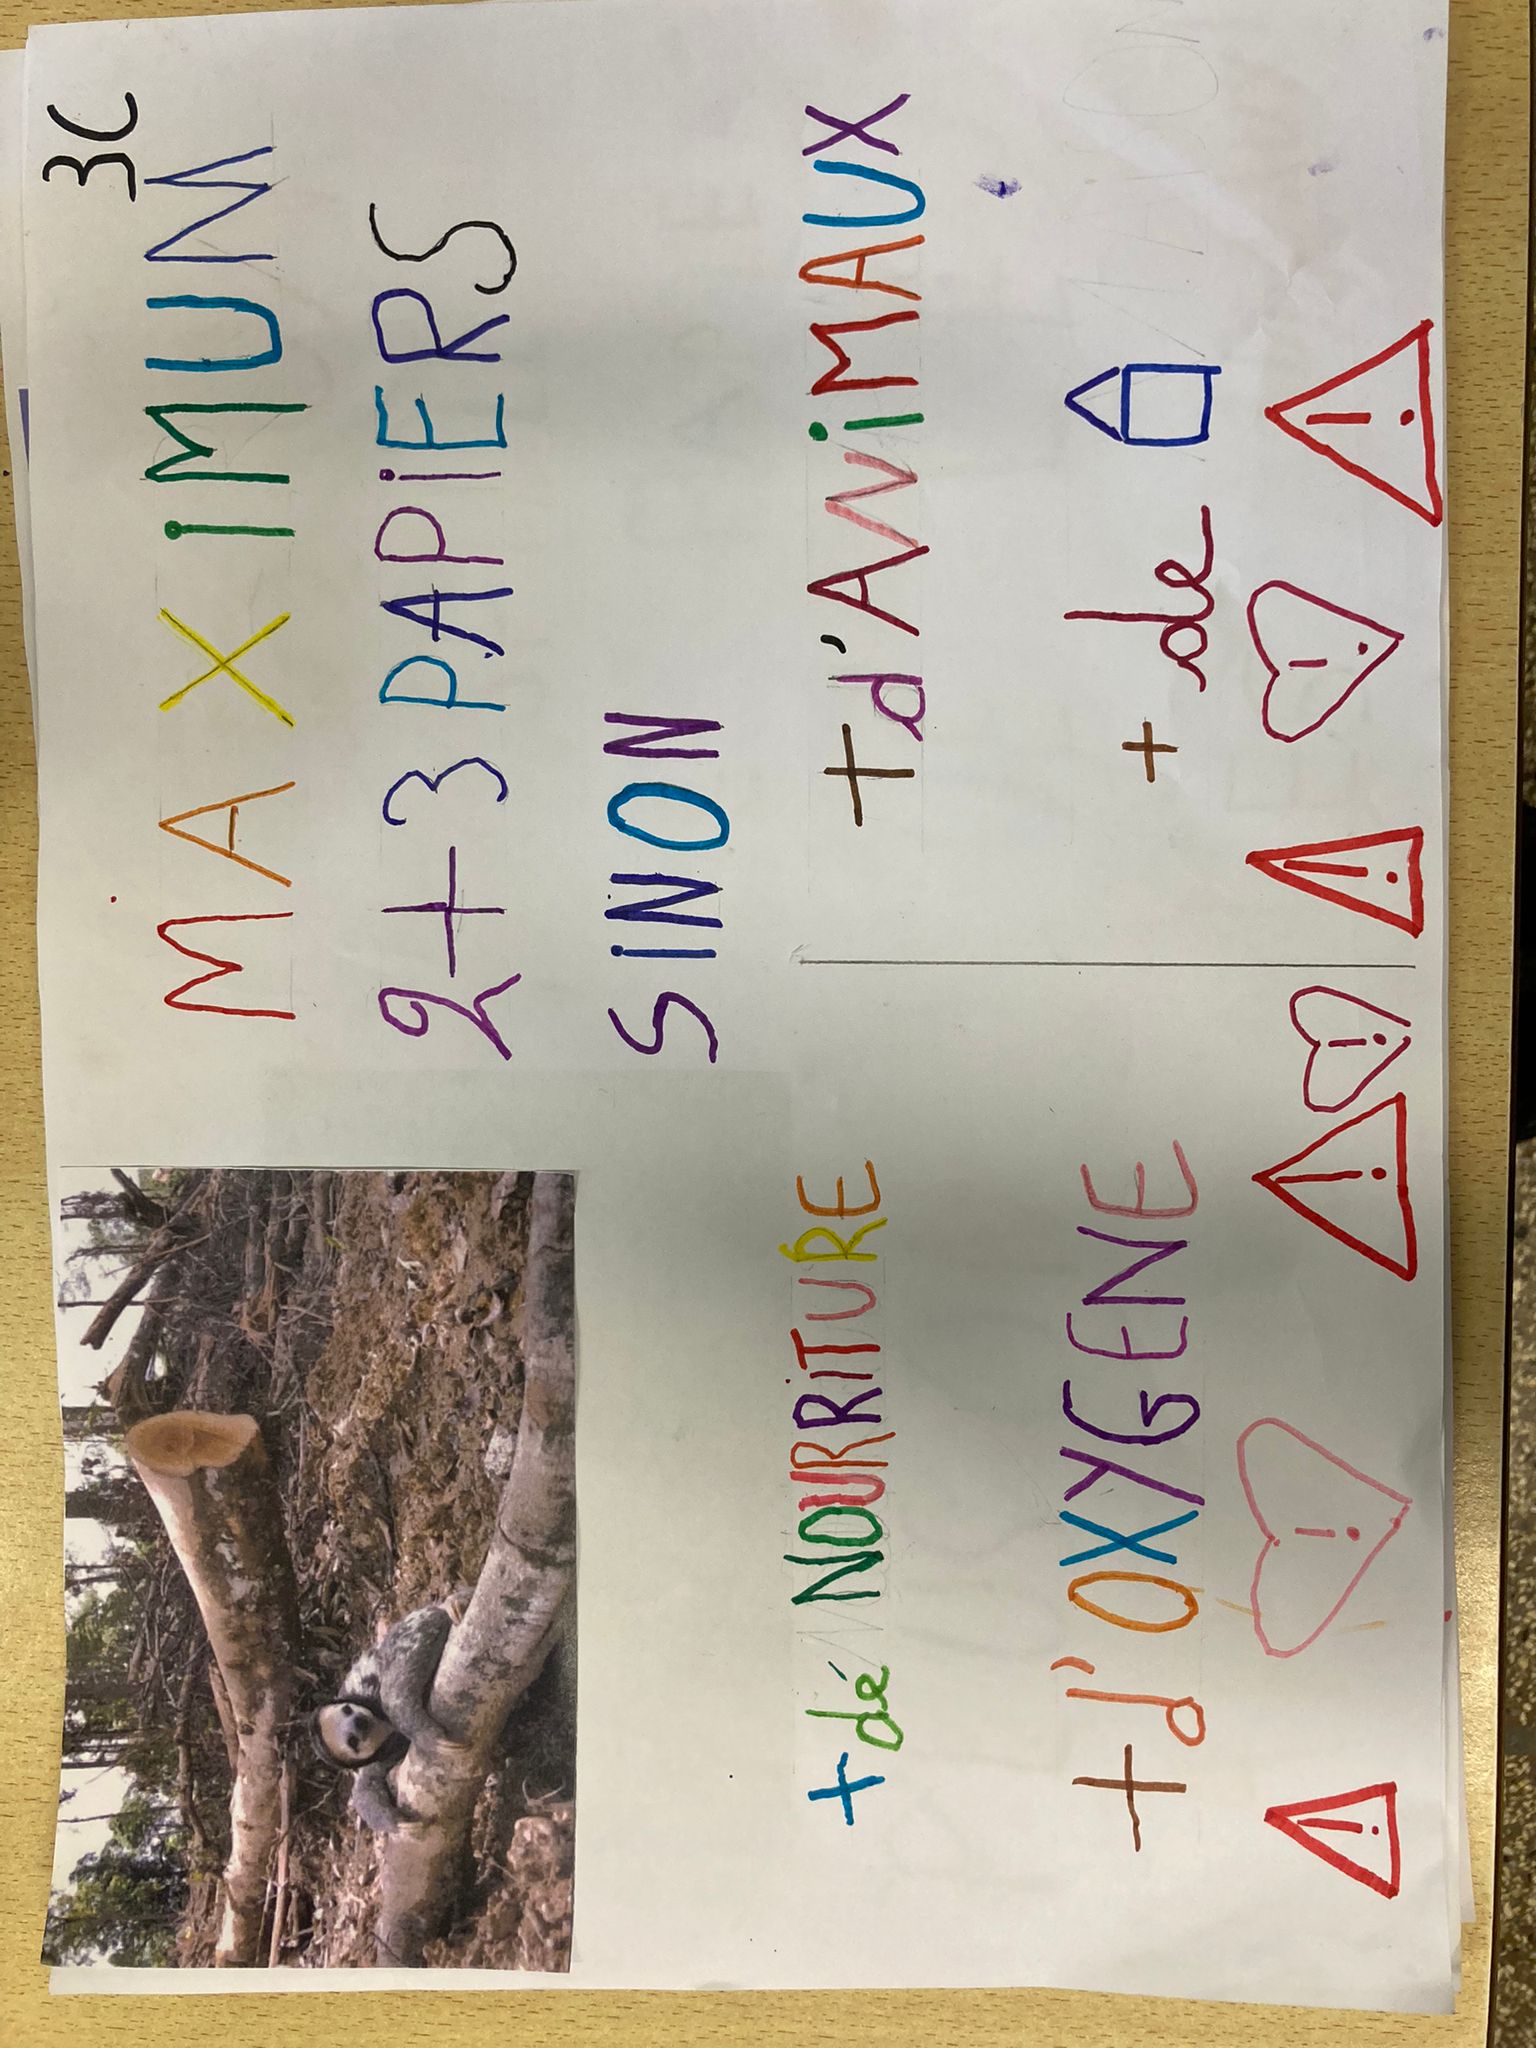 3C
MAXiMUM
2+3 PAPiERS
SiNON
+ dé NOURRiTURE
+ d'ANiMAUX
+ d'OXYGENE
+ de